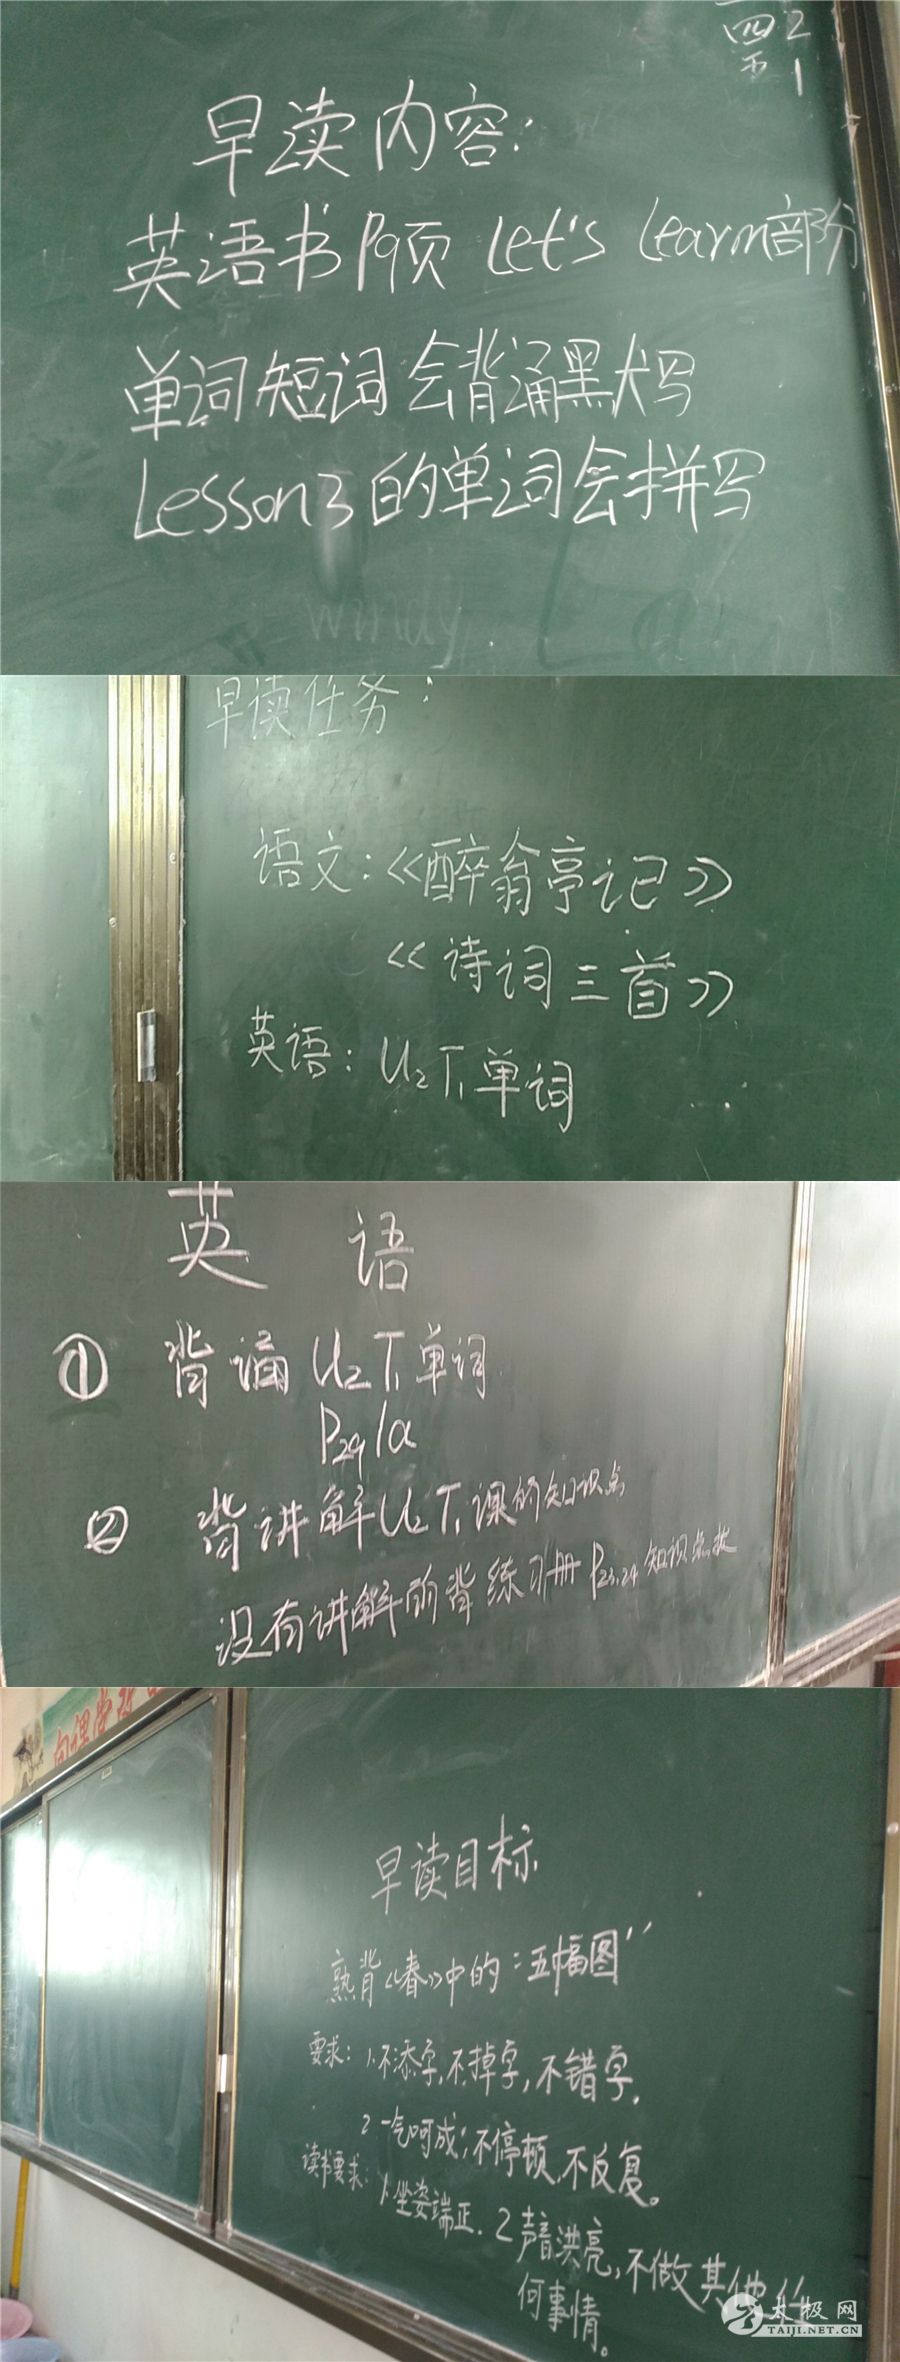 四 2
五 1
早读内容:
英语书P9页 Let's Learn部分
单词短词会背诵黑犬写
Lesson3的单词会拼写
windy
早读任务:
语文:《醉翁亭记》
《诗词三首》
英语:U2T1单词
英语
① 背诵U2T1单词
P29 1a
② 背讲解U2T1课的知识点
没有讲解的背练习册P23.24知识点拔
向课堂
早读目标
熟背《春》中的"五幅图"
要求:1.不添字,不掉字,不错字.
2一气呵成;不停顿,不反复。
读书要求:1.坐姿端正.2声音洪亮,不做其他任
何事情。
太极网
TAIJI.NET.CN